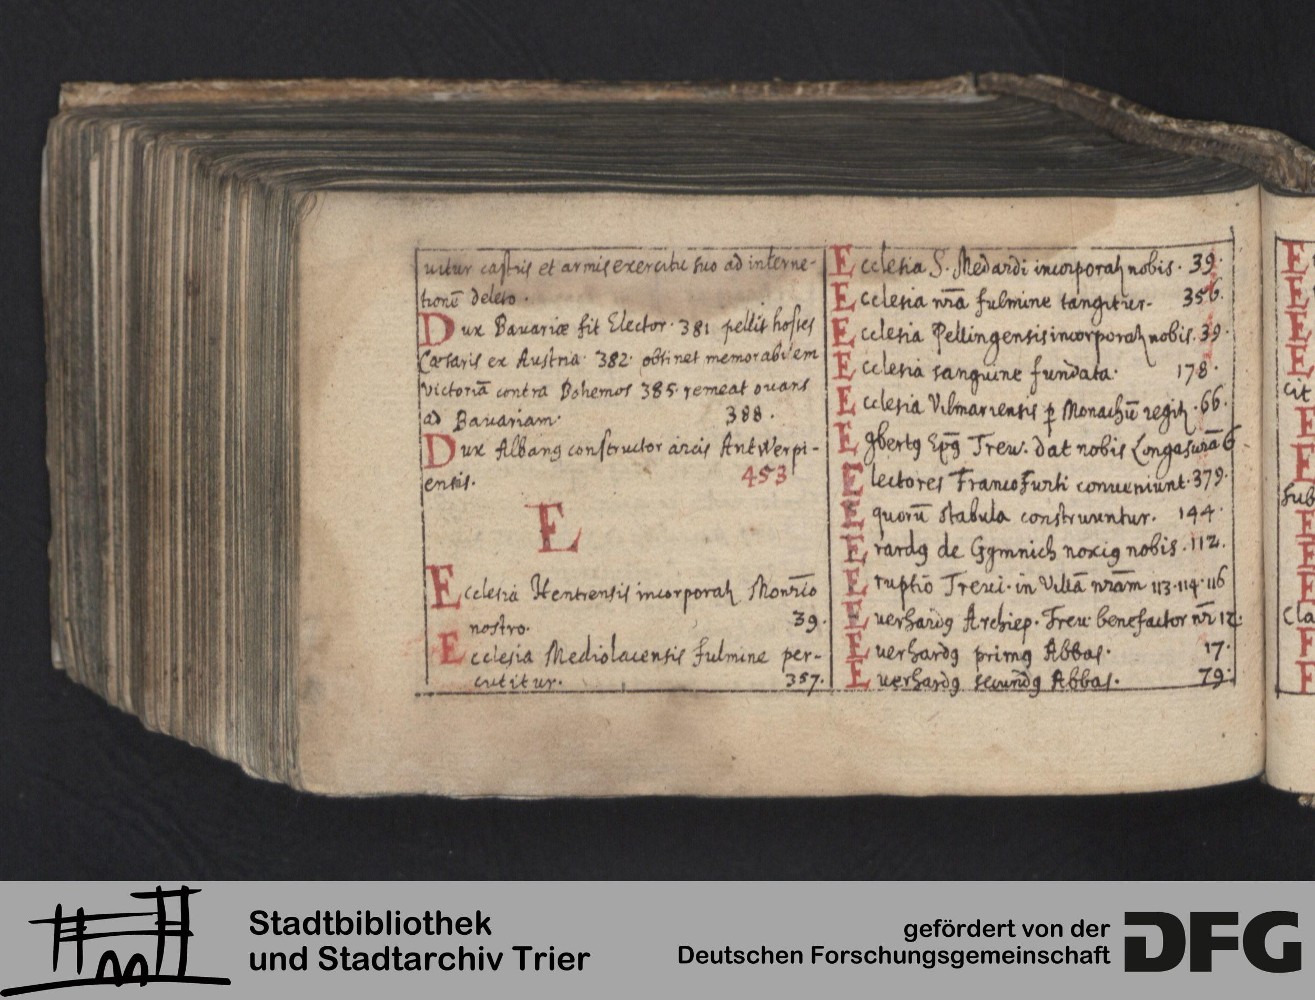 uitur castris et armis exercitu suo ad interne-
tionē deleto.
Dux Bauariæ fit Elector. 381 pellit hostes
Cæsaris ex Austria. 382. obtinet memorabilem
victoriā contra Bohemos 385. remeat ouans
ad Bauariam. 388.
Dux Albanꝯ constructor arcis Antwerpi-
ensis. 453
E
Ecclesia Hentrensis incorporaꝶ Monrīo
nostro. 39.
Ecclesia Mediolacensis fulmine per-
cutitur. 357.
Ecclesia S. Medardi incorporaꝶ nobis. 39.
Ecclesia nr̄a fulmine tangitur. 356.
Ecclesia Pellingensis incorporaꝶ nobis. 39.
Ecclesia sanguine fundata. 178.
Ecclesia Vilmariensis ꝑ Monachū regiꝶ. 66.
Egbertꝯ Ep̄ꝯ Treu. dat nobis 6.
Electores Francofurti conueniunt. 379.
Equorū stabula construuntur. 144.
Erardꝯ de Gymnich noxiꝯ nobis. 112.
Eruptio Treui. in Villā nr̄am 113. 114. 116
Euerhardꝯ Archiep. Treu. benefactor nr̄ 12.
Euerhardꝯ primꝯ Abbas. 17.
Euerhardꝯ secundꝯ Abbas. 79.
E
E
E
E
cit
E
E
sub
E
E
E
cla
E
E
Stadtbibliothek
und Stadtarchiv Trier
gefördert von der
Deutschen Forschungsgemeinschaft
DFG